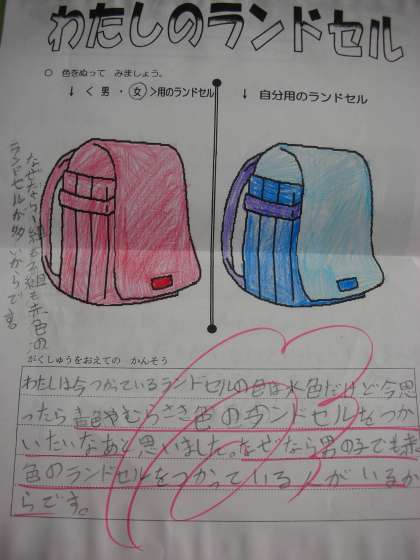 わたしのランドセル
○ 色をぬって みましょう。
↓ 〈 男 ・ 女 〉用のランドセル
↓ 自分用のランドセル
なぜなら1組も2組も赤色の
ランドセルが多いからです。
がくしゅうをおえての かんそう
わたしは今つかっているランドセルの色は水色だけど今思
ったら青色やむらさき色のランドセルをつか
いたいなあと思いました。なぜなら男の子でも赤
色のランドセルをつかっている人がいるか
らです。